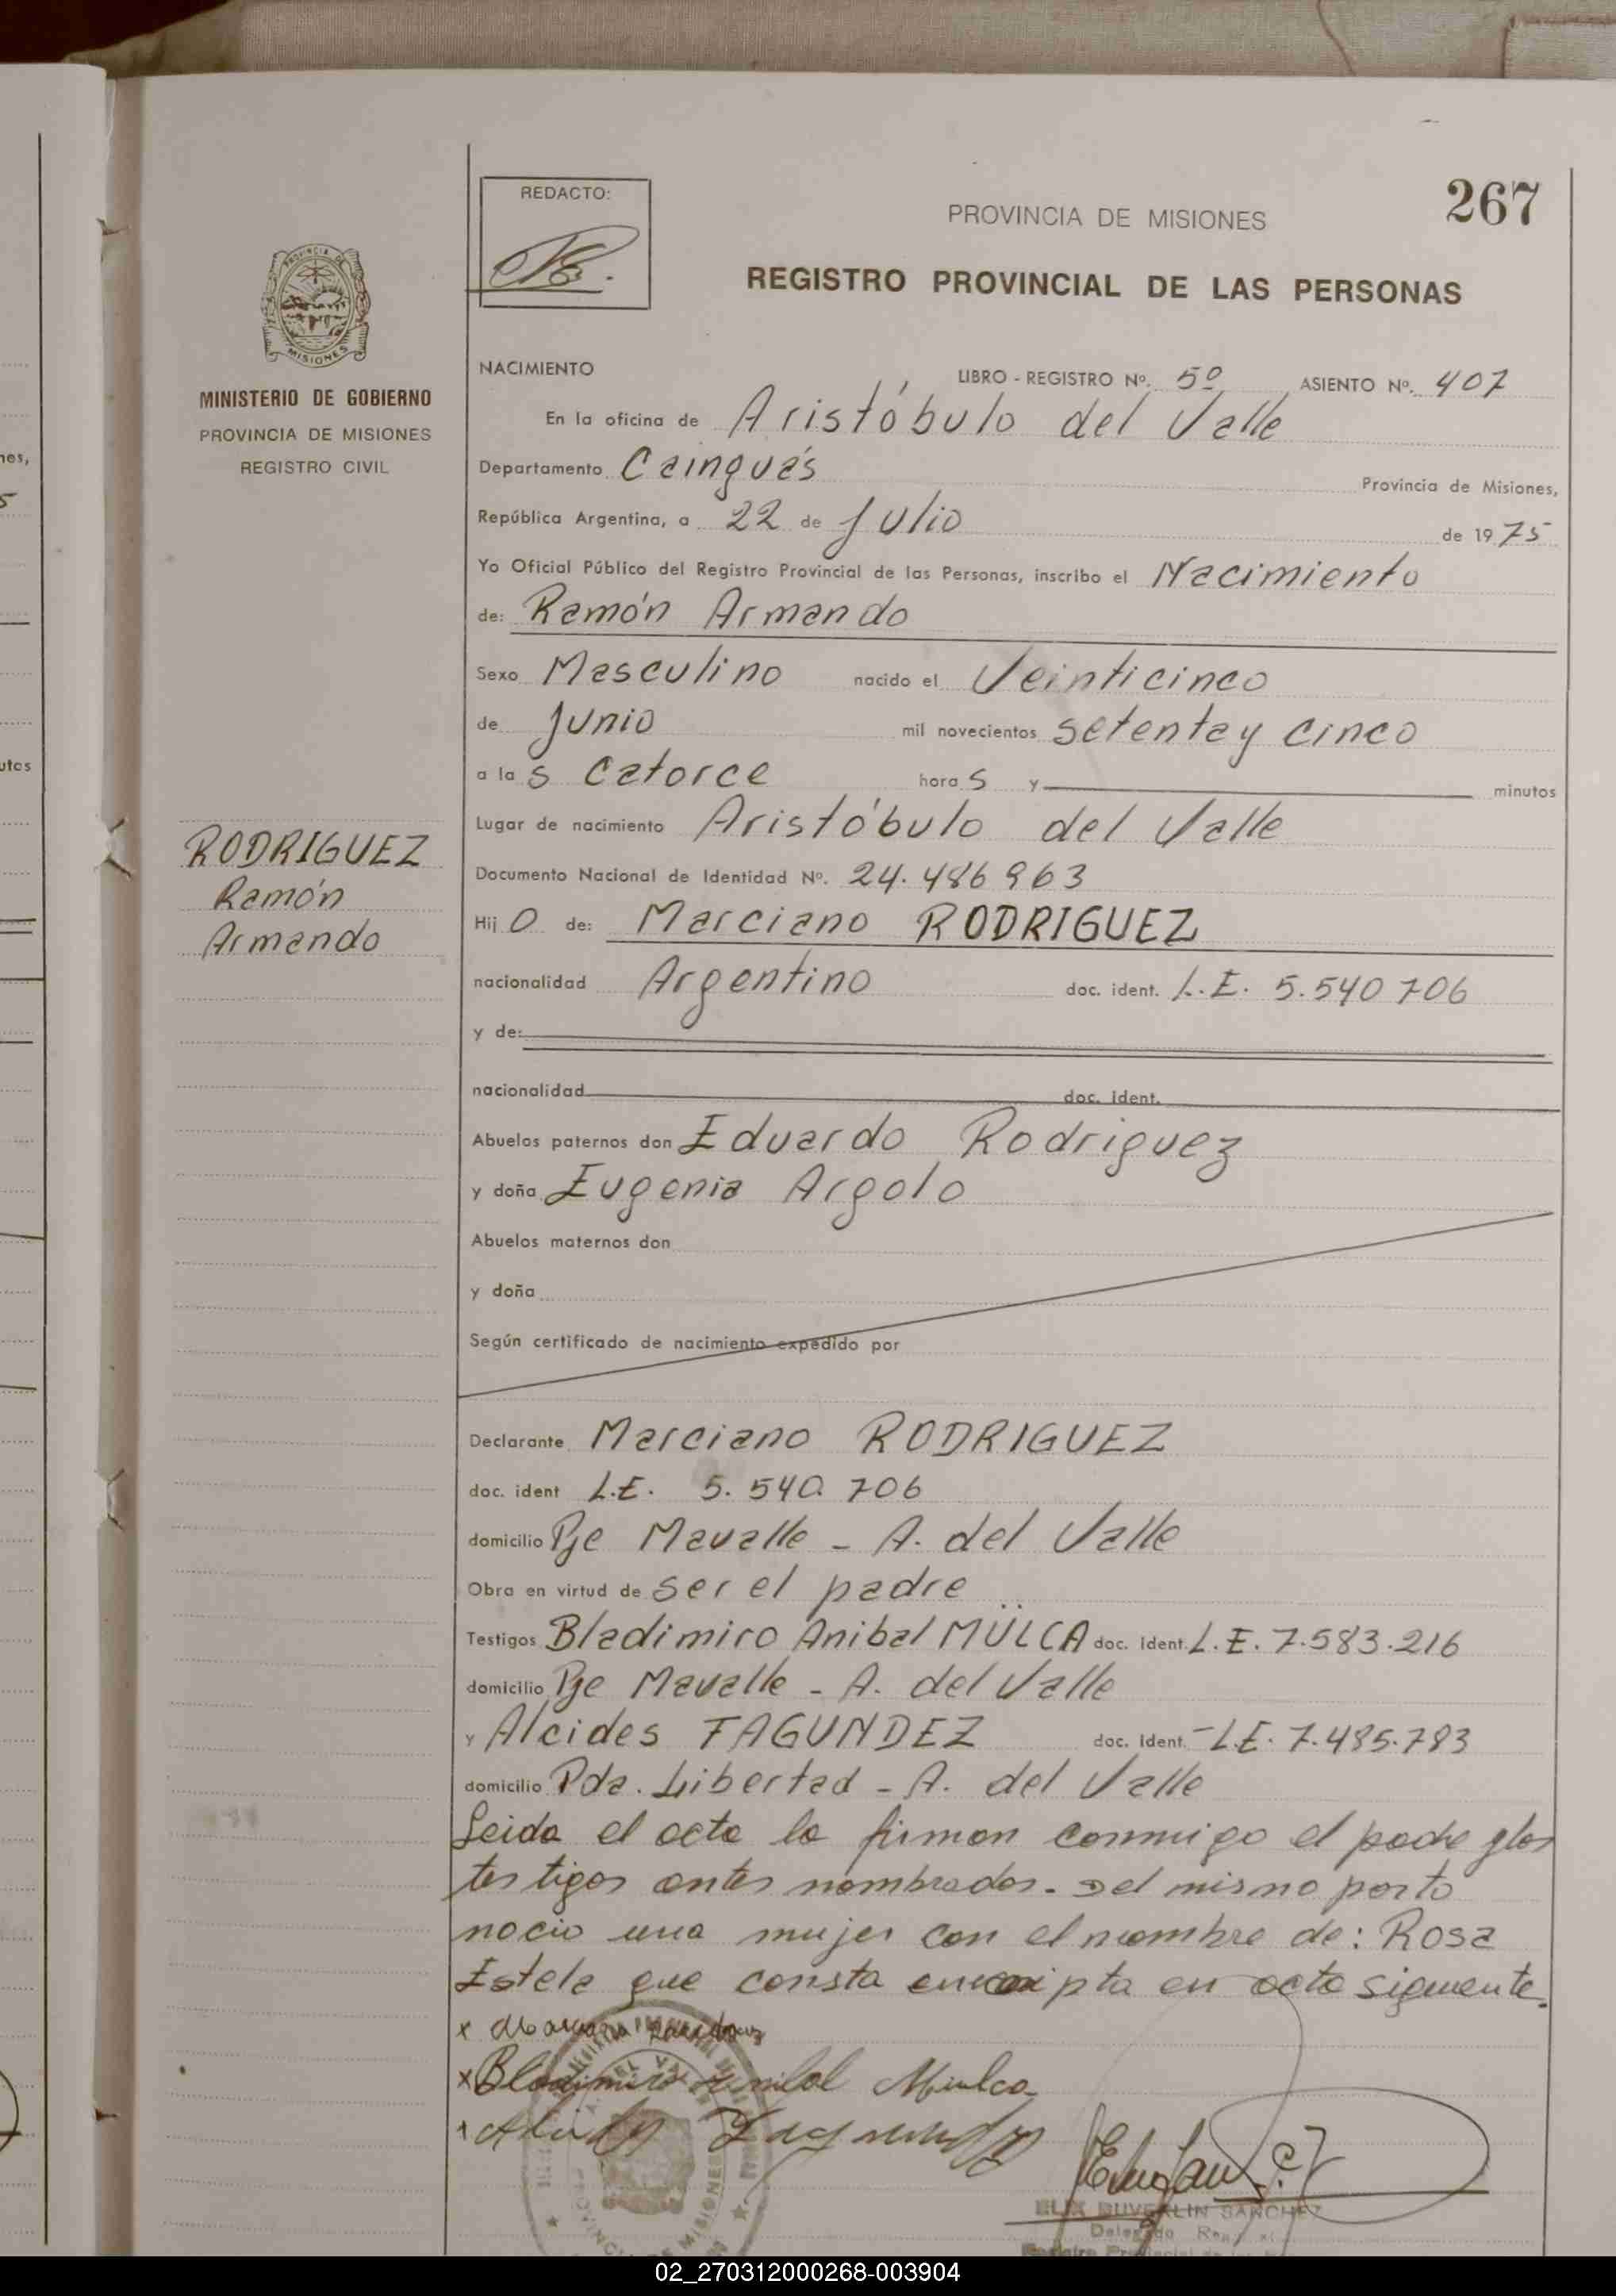 267
REDACTO:
PROVINCIA DE MISIONES
REGISTRO PROVINCIAL DE LAS PERSONAS
PROVINCIA DE
MISIONES
MINISTERIO DE GOBIERNO
PROVINCIA DE MISIONES
REGISTRO CIVIL
NACIMIENTO LIBRO - REGISTRO Nº. 5º ASIENTO Nº. 407
En la oficina de Aristóbulo del Valle
Departamento Cainguás Provincia de Misiones,
República Argentina, a 22 de Julio de 1975
Yo Oficial Público del Registro Provincial de las Personas, inscribo el Nacimiento
de: Ramón Armando
Sexo Masculino nacido el Veinticinco
de Junio mil novecientos setenta y cinco
a las catorce horas y minutos
Lugar de nacimiento Aristóbulo del Valle
RODRIGUEZ
Ramón
Armando
Documento Nacional de Identidad Nº. 24.486963
Hijo de: Marciano RODRIGUEZ
nacionalidad Argentino doc. ident. L.E. 5.540706
y de:
nacionalidad doc. ident.
Abuelos paternos don Eduardo Rodriguez
y doña Eugenia Argolo
Abuelos maternos don
y doña
Según certificado de nacimiento expedido por
Declarante Marciano RODRIGUEZ
doc. ident L.E. 5.540.706
domicilio Pje Mavalle - A. del Valle
Obra en virtud de ser el padre
Testigos Bladimiro Anibal MÜLCA doc. ident. L.E. 7.583.216
domicilio Pje Mavalle - A. del Valle
y Alcides FAGUNDEZ doc. ident. L.E. 7.485.783
domicilio Pda. Libertad - A. del Valle
Leida el acta la firman conmigo el padre y los
testigos antes nombrados. Del mismo parto
nacio una mujer con el nombre de: Rosa
Estela que consta en acta siguiente.
x
x Bladimiro Anibal Mulca
x Fagundez
ELIX DUVERLIN SANCHEZ
Delegado
02_270312000268-003904